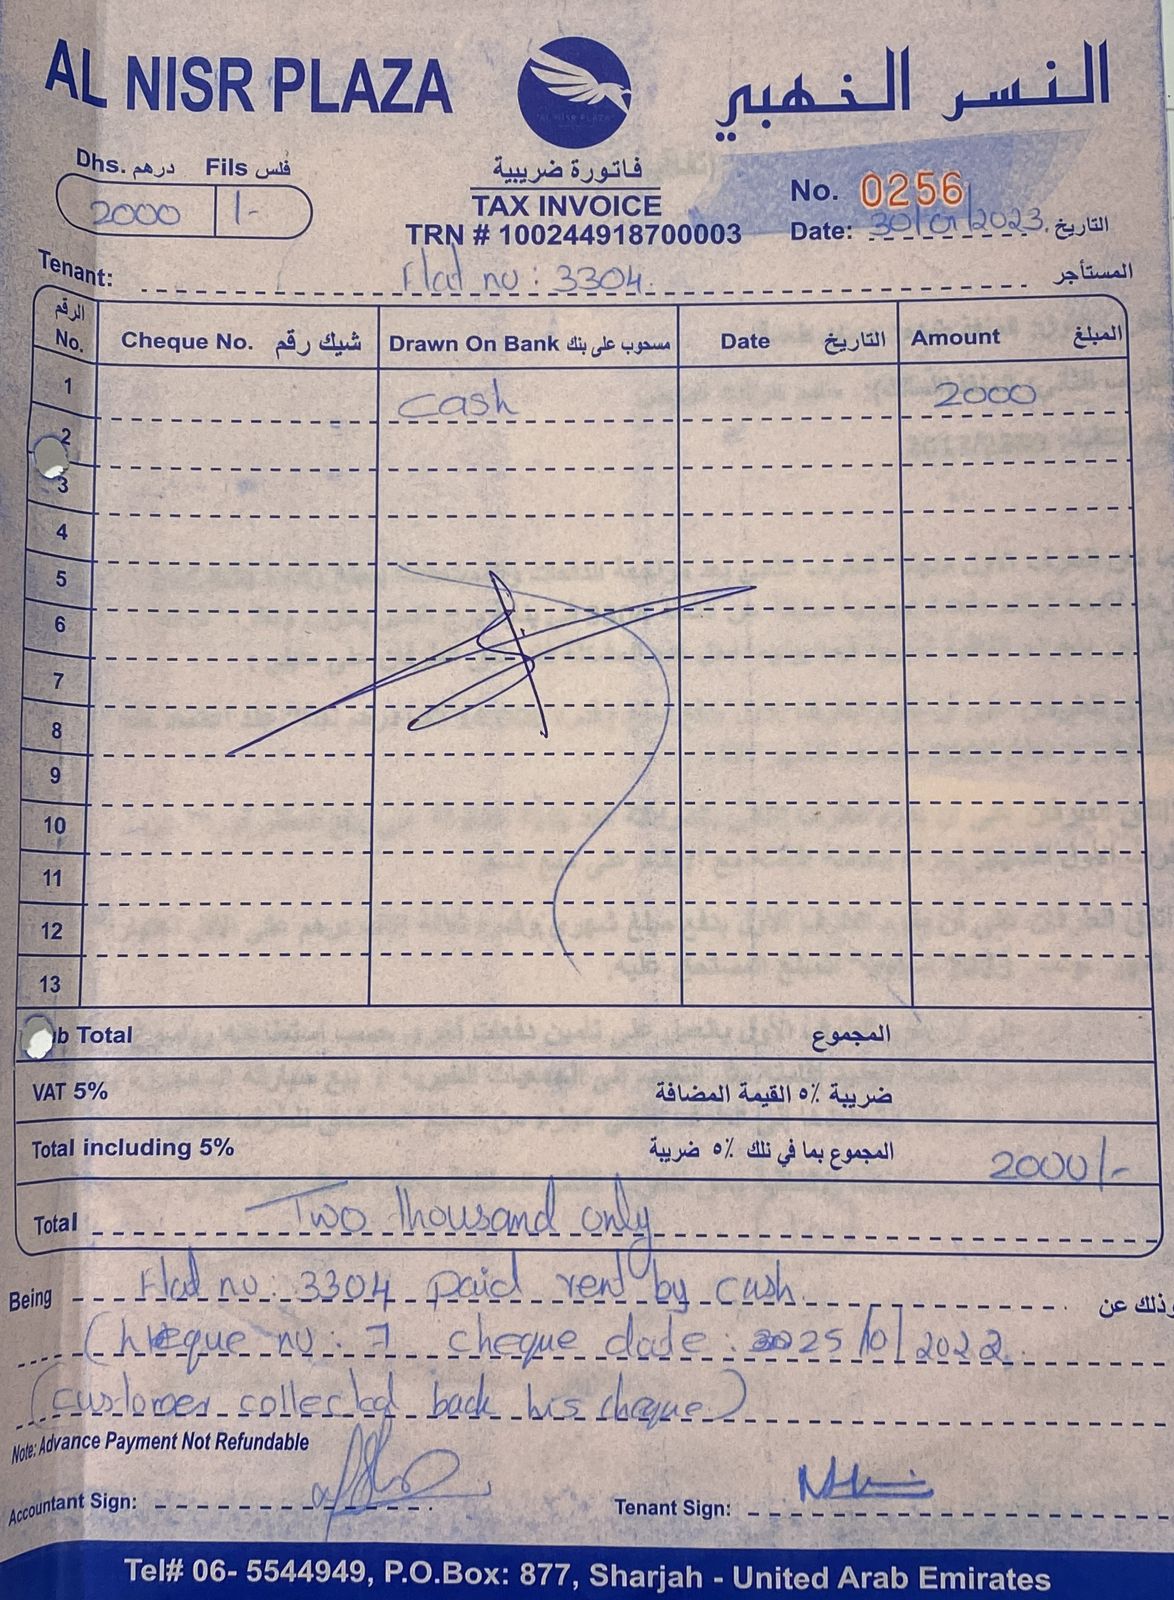 AL NISR PLAZA
النسر الذهبي
AL NISR PLAZA
Dhs. درهم Fils فلس
2000 /-
فاتورة ضريبية
TAX INVOICE
TRN # 100244918700003
No. 0256
Date: 30/01/2023. التاريخ
Tenant: Flat no : 3304. المستأجر
الرقم No. Cheque No. شيك رقم Drawn On Bank مسحوب على بنك Date التاريخ Amount المبلغ
1 Cash 2000
2
3
4
5
6
7
8
9
10
11
12
13
ub Total المجموع
VAT 5% ضريبة ٥٪ القيمة المضافة
Total including 5% المجموع بما في تلك ٥٪ ضريبة 2000/-
Total Two thousand only
Being Flat no: 3304 paid rent by cash. وذلك عن
(Cheque no : 7 cheque date : 25/10/2022.
(customer collected back his cheque)
Note: Advance Payment Not Refundable
Accountant Sign:
Tenant Sign:
Tel# 06- 5544949, P.O.Box: 877, Sharjah - United Arab Emirates